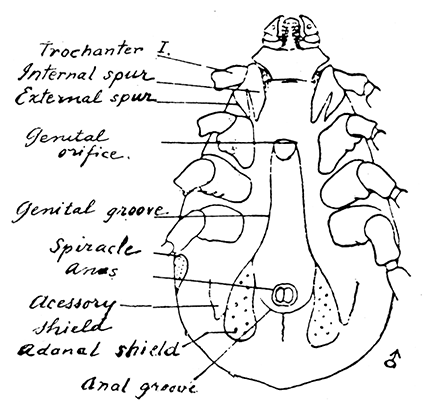 Trochanter I.
Internal spur
External spur
Genital
orifice.
Genital groove.
Spiracle
Anus
Acessory
shield
Adanal shield
Anal groove
♂